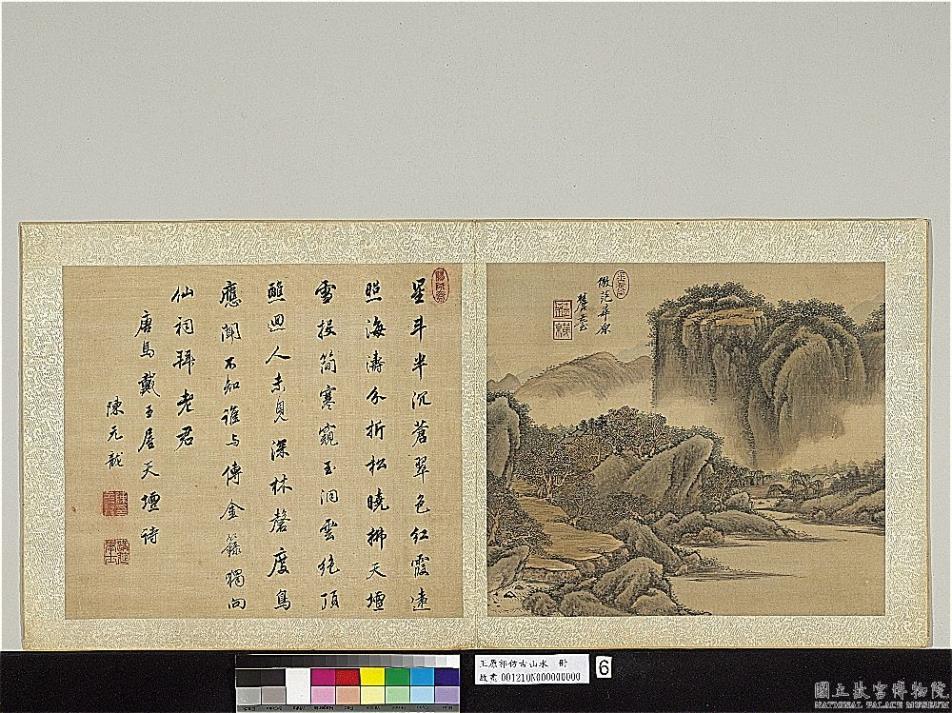 倣范華原
麓臺
星斗半沉蒼翠色紅霞遠
照海濤分折松曉拂天壇
雪投簡寒窺玉洞雲絕頂
醮迴人未見深林磬度鳥
應聞不知誰與傳金籙獨向
仙祠拜老君
唐馬戴王屋天壇詩
陳元龍
王原祁仿古山水 冊
故畫 001210N000000000
6
國立故宮博物院
NATIONAL PALACE MUSEUM